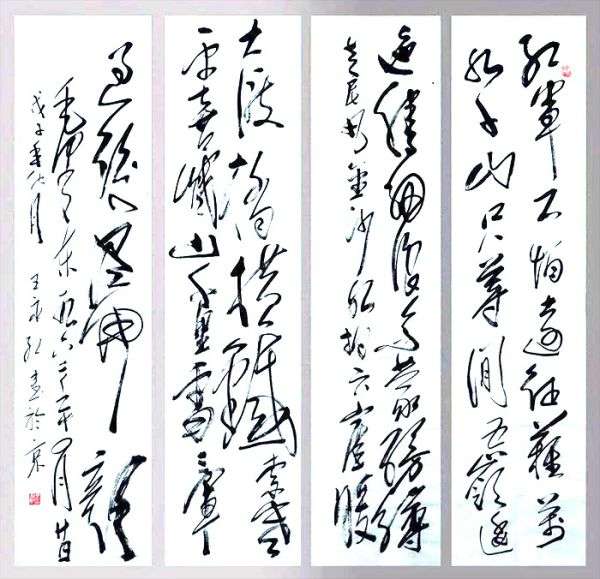 紅軍不怕遠征難萬
水千山只等閒五嶺逶
迤騰細浪烏蒙磅礴
走泥丸金沙水拍云崖暖
大渡橋橫鐵索寒
更喜岷山千里雪三軍
過後盡開顏
毛澤東 月廿日
戊子年 月 王 紅書於京